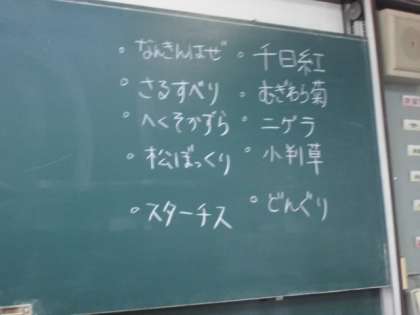 。なんきんはぜ 。千日紅
。さるすべり 。むぎわら菊
。へくそかずら 。ニゲラ
。松ぼっくり 。小判草
。スターチス 。どんぐり